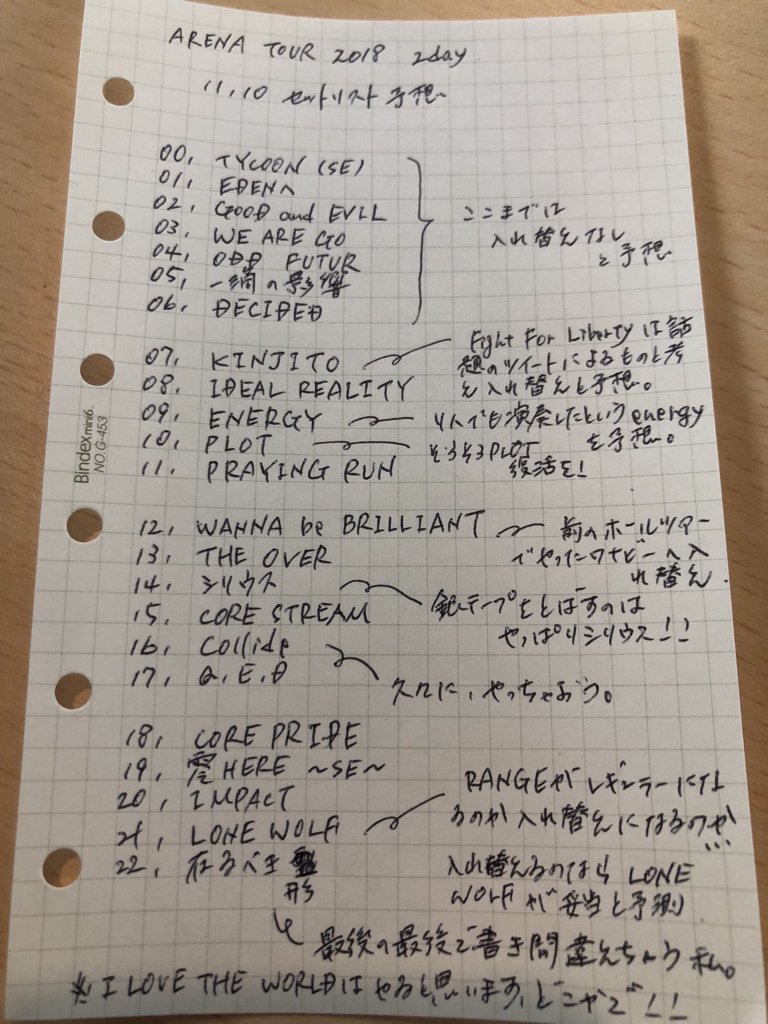 ARENA TOUR 2018 2day
11.10 セットリスト予想
00, TYCOON (SE)
01, EDENへ
02, GOOD and EVIL
03, WE ARE GO
04, ODD FUTUR
05, 一滴の影響
06, DECIDED
ここまでは
入れ替えなし
と予想
07, KINJITO
08, IDEAL REALITY
09, ENERGY
10, PLOT
11, PRAYING RUN
Fight For Libertyは話
題のツイートによるものと考
え入れ替えと予想。
4人でも演奏したというenergy
を予想。
そろそろPLOT
復活を!
Bindex mini6.
NO.G-453
12, WANNA be BRILLIANT
13, THE OVER
14, シリウス
15, CORE STREAM
16, Collide
17, Q.E.D
前のホールツアー
でやったワナビーへ入
れ替え.
銀テープをとばすのは
やっぱりシリウス!!
久々に、やっちゃおう。
18, CORE PRIDE
19, 零HERE ~SE~
20, IMPACT
21, LONE WOLF
22, 在るべき
形
RANGEがレギュラーにな
るのか入れ替えになるのか...
入れ替えるのなら LONE
WOLFが妥当と予測
最後の最後で書き間違えちゃう私。
※ I LOVE THE WORLDはやると思います、どこかで!!